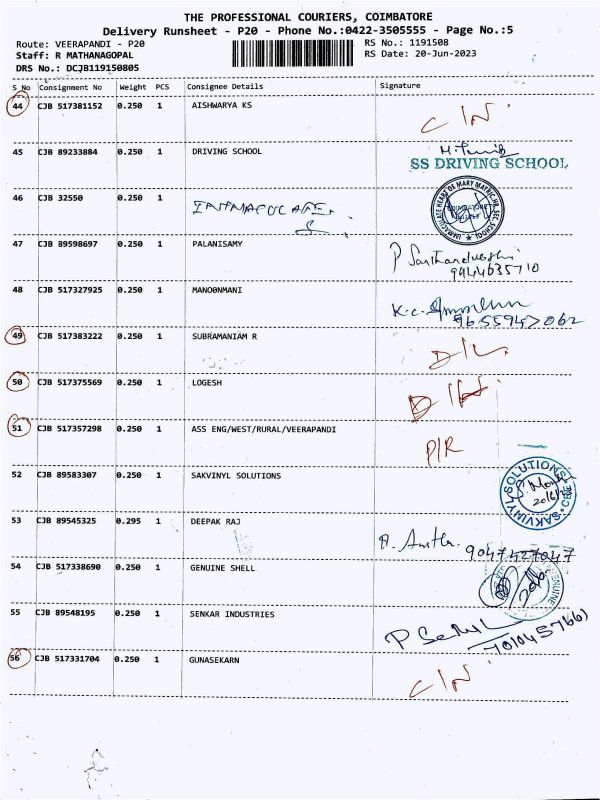 THE PROFESSIONAL COURIERS, COIMBATORE
Delivery Runsheet - P20 - Phone No.:0422-3505555 - Page No.:5
Route: VEERAPANDI - P20 RS No.: 1191508
Staff: R MATHANAGOPAL RS Date: 20-Jun-2023
DRS No.: DCJB119150805
S No Consignment No Weight PCS Consignee Details Signature
44 CJB 517381152 0.250 1 AISHWARYA KS
C/N
45 CJB 89233884 0.250 1 DRIVING SCHOOL
SS DRIVING SCHOOL
46 CJB 32550 0.250 1
IMMACULATE HEART OF MARY MATRIC.HR.SEC.SCHOOL
47 CJB 89598697 0.250 1 PALANISAMY
9944635710
48 CJB 517327925 0.250 1 MANOONMANI
K.C.
9655947062
49 CJB 517383222 0.250 1 SUBRAMANIAM R
D/L
50 CJB 517375569 0.250 1 LOGESH
51 CJB 517357298 0.250 1 ASS ENG/WEST/RURAL/VEERAPANDI
P/R
52 CJB 89583307 0.250 1 SAKVINYL SOLUTIONS
SAKVINYL SOLUTIONS * CBE *
53 CJB 89545325 0.295 1 DEEPAK RAJ
9047427047
54 CJB 517338690 0.250 1 GENUINE SHELL
GENUINE
55 CJB 89548195 0.250 1 SENKAR INDUSTRIES
56 CJB 517331704 0.250 1 GUNASEKARN
C/N